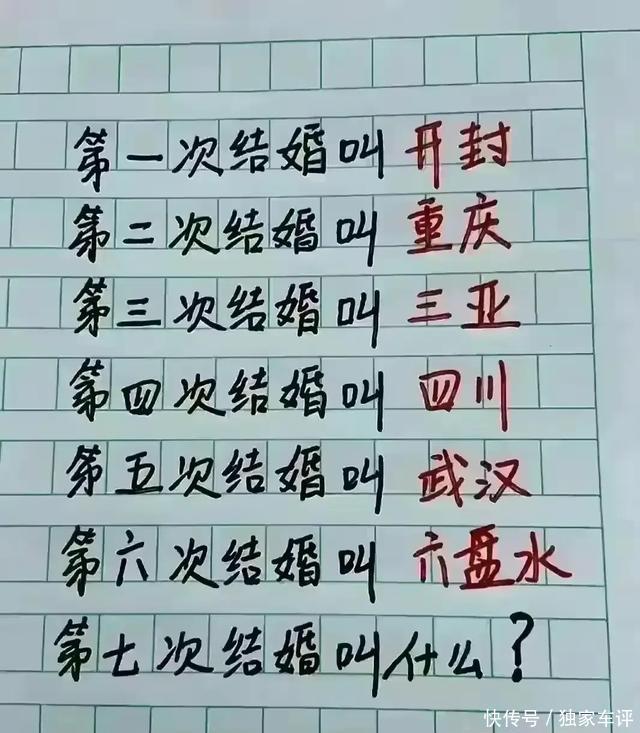 第一次结婚叫 开封
第二次结婚叫 重庆
第三次结婚叫 三亚
第四次结婚叫 四川
第五次结婚叫 武汉
第六次结婚叫 六盘水
第七次结婚叫什么?
快传号/独家车评